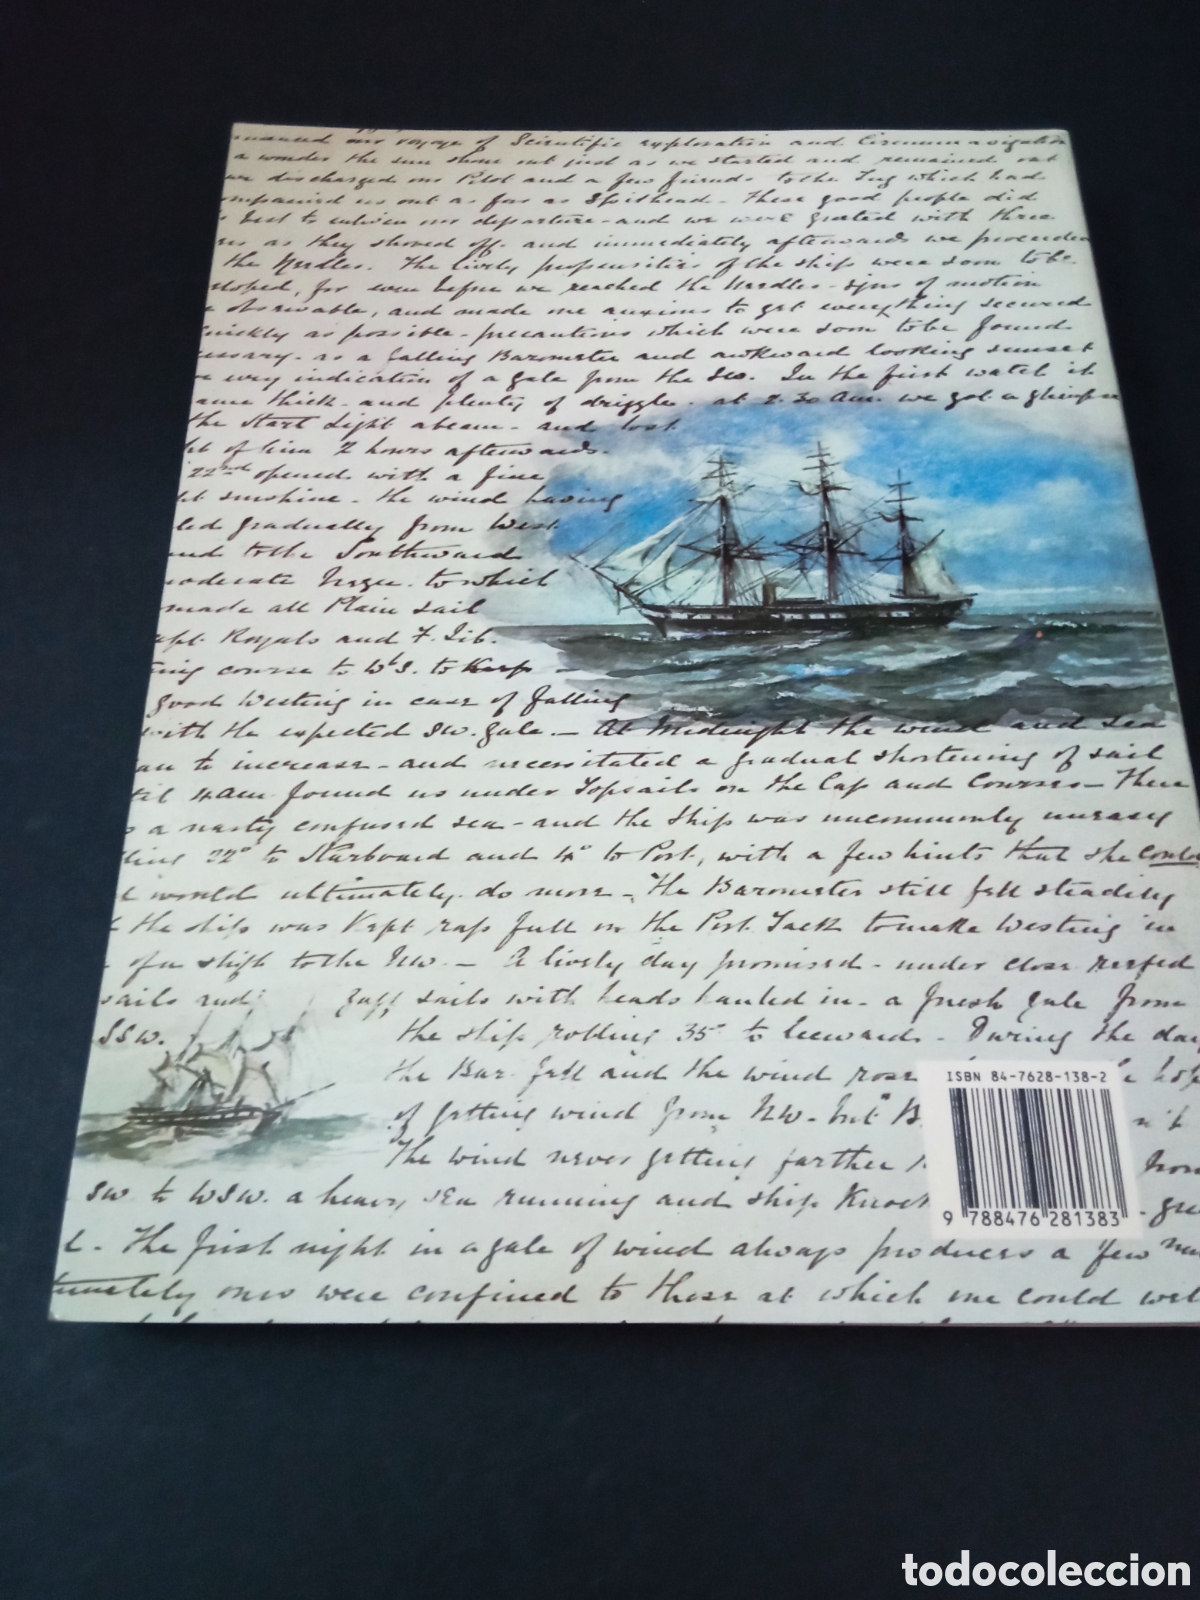 our voyage of Scientific exploration and Circumnavigation
a wonder the sun shone out just as we started and remained out
we discharged our Pilot and a few friends to the Tug which had
us out as far as Spithead - These good people did
best to enliven our departure - and we were greeted with three
as they shoved off - and immediately afterwards we proceeded
the Needles. The lively propensities of the ship were soon to be
for even before we reached the Needles - signs of motion
observable, and made me anxious to get everything secured
quickly as possible - precautions which were soon to be found
essary - as a falling Barometer and awkward looking sunset
indication of a gale from the SW. In the first watch it
came thick - and plenty of drizzle - at 2.30 am. we got a glimpse
the Start Light abeam - and lost
ht of him 2 hours afterwards.
22nd opened with a fine
sunshine - the wind having
led gradually from West
to the Southward
moderate breeze - to which
made all Plain sail
Royals and F. Jib.
ing course to WbS. to Keep
good Westing in case of falling
with the expected SW. gale. - At Midnight the wind and sea
to increase - and necessitated a gradual shortening of sail
til 4 am found us under Topsails on the Cap and Courses - There
a nasty confused sea - and the ship was uncommonly uneasy
lling 22° to Starboard and 14° to Port, with a few hints that she could
would ultimately do more - The Barometer still fell steadily
the ship was Kept rap full on the Port Tack to make Westing in
of a shift to the NW. - A lively day promised - under close reefed
sails and gaff sails with heads hauled in - a fresh gale from
SSW. the ship rolling 35° to leeward - During the day
the Bar. fell and the wind rose
of getting wind from NW - but
The wind never getting farther
from
SW. to WSW. a heavy sea running and ship Knock
The first night in a gale of wind always produces a few
ours were confined to those at which one could
ISBN 84-7628-138-2
9 788476 281383
todocoleccion